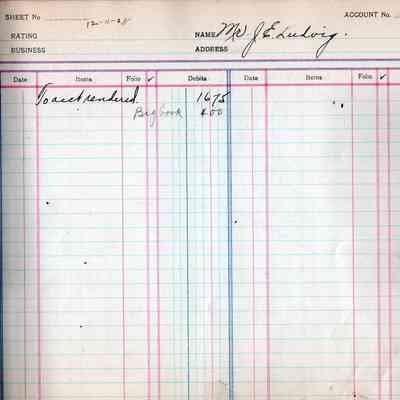 SHEET No 12-11-28 ACCOUNT No.
RATING NAME Mr J. E. Ludwig.
BUSINESS ADDRESS
Date Items Folio ✓ Debits Date Items Folio ✓
To acct rendered. 1675
Big book 400